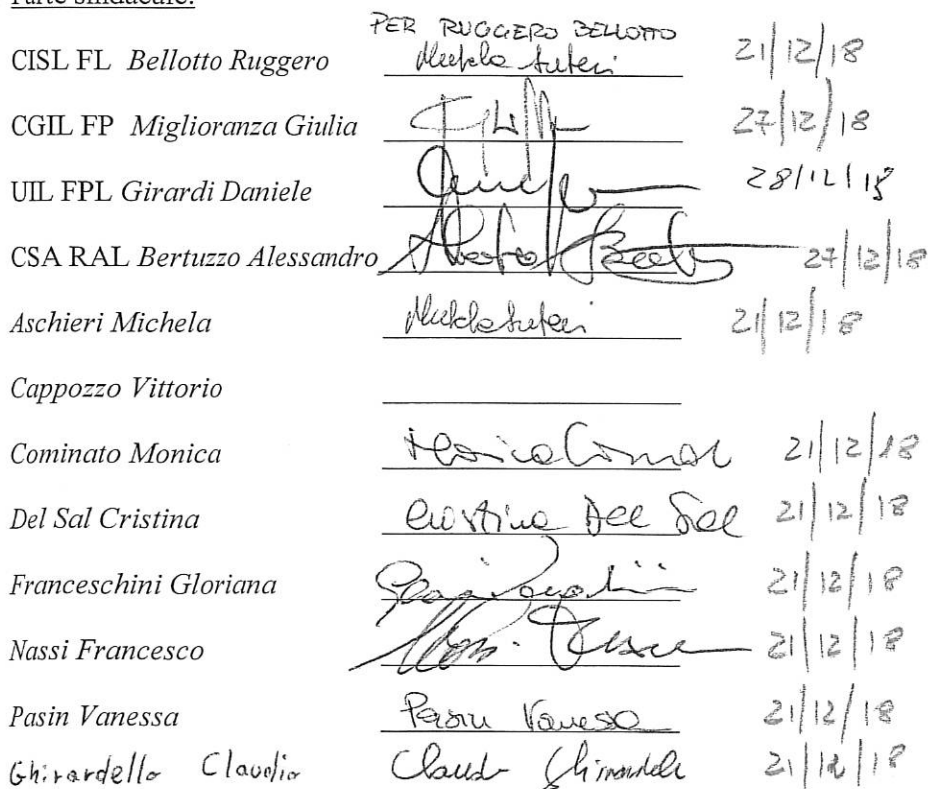 Parte sindacale:
PER RUGGERO BELLOTTO
CISL FL Bellotto Ruggero 21/12/18
CGIL FP Miglioranza Giulia 27/12/18
UIL FPL Girardi Daniele 28/12/18
CSA RAL Bertuzzo Alessandro 27/12/18
Aschieri Michela 21/12/18
Cappozzo Vittorio
Cominato Monica Monica Cominat 21/12/18
Del Sal Cristina Cristina Del Sal 21/12/18
Franceschini Gloriana 21/12/18
Nassi Francesco 21/12/18
Pasin Vanessa Pasin Vanessa 21/12/18
Ghirardello Claudio Claudio Ghirardello 21/12/18